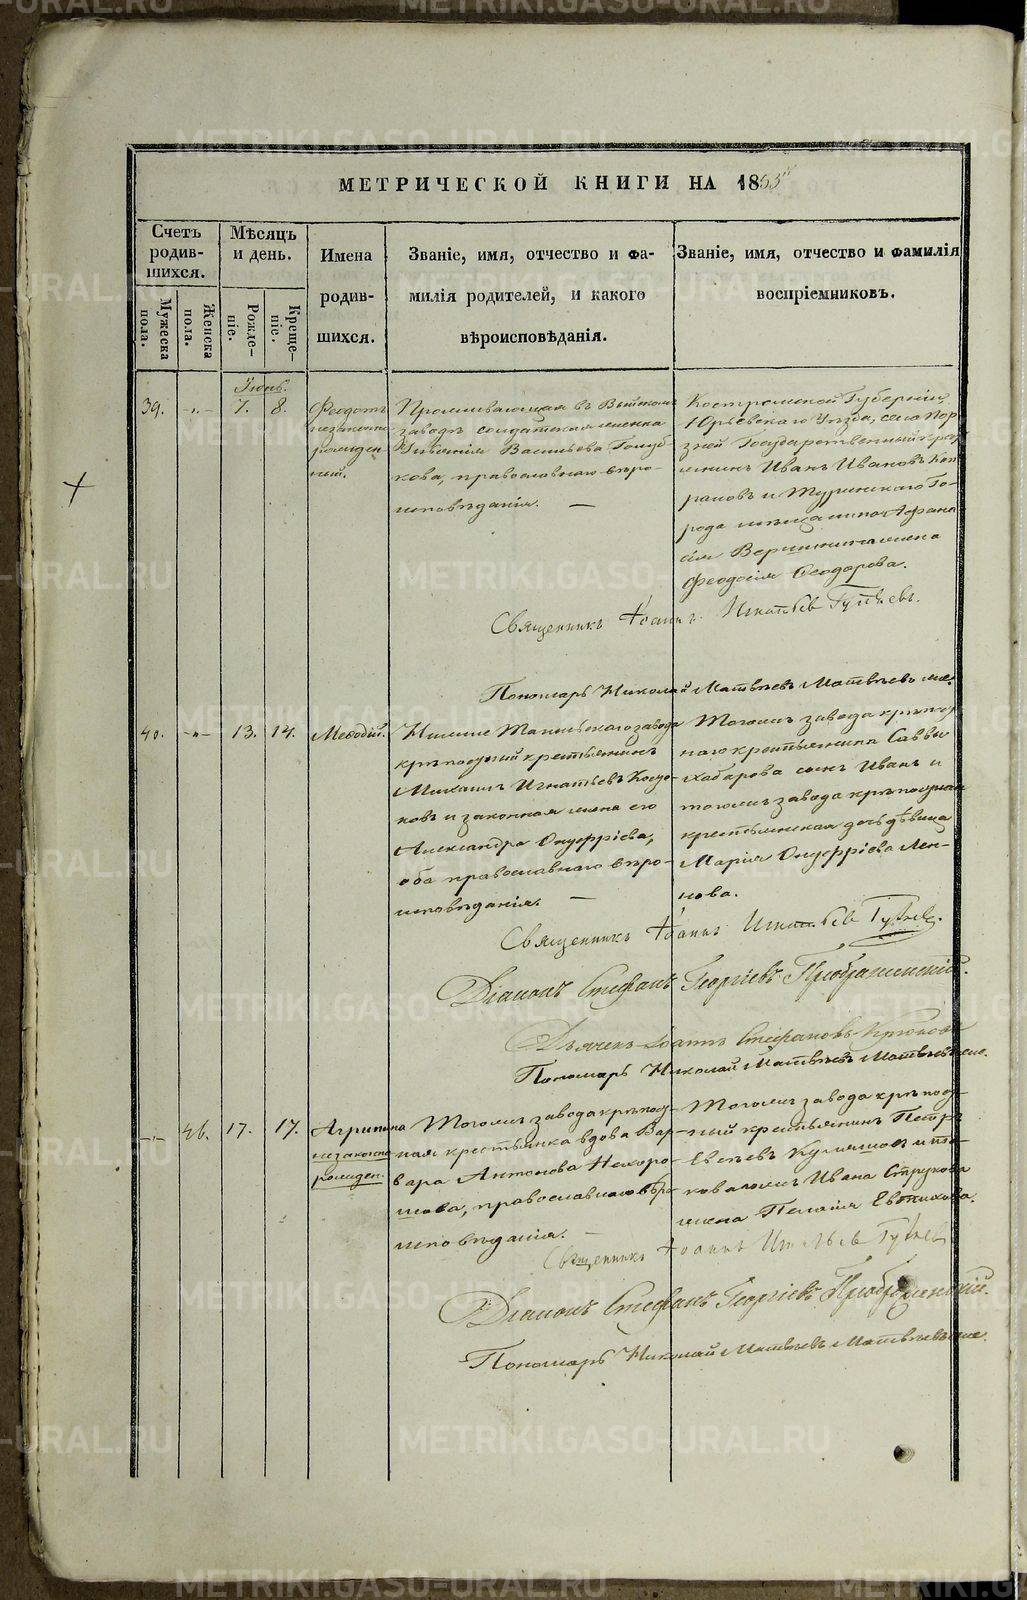 МЕТРИЧЕСКОЙ КНИГИ НА 1853й
Счетъ родив- шихся.
Мѣсяцъ и день.
Имена родив- шихся.
Званіе, имя, отчество и фа-
милія родителей, и какого
вѣроисповѣданія.
Званіе, имя, отчество и фамилія
воспріемниковъ.
Мужеска пола.
Женска пола.
Рожде- ніе.
Креще- ніе.
Іюнь.
39. -„- 7. 8.
Феодотъ
незаконно
рожден-
ный.
Проживающая въ Выйскомъ
заводѣ солдатская женка
Васильева Голуб-
кова, православнаго вѣро-
исповѣданія. —
Костромской Губерніи,
Юрьевскаго Уѣзда, села Пор-
здней Государственный кре-
Иванъ Ивановъ
и Туринскаго Го-
рода Афана
сія Вершинина жена
Феодосія Феодорова.
Священникъ Іоаннъ Игнатьевъ
Пономарь Николай Матвѣевъ
40. -„- 13. 14. Меѳодій.
Нижне Тагильскаго завода
крѣпостный крестьянинъ
Михаилъ Игнатьевъ
ковъ и законная жена его
Александра Онуфріева,
оба православнаго вѣро-
исповѣданія. —
Тогожъ завода крѣпост-
наго крестьянина Саввы
Хабарова сынъ Иванъ и
тогожъ завода крѣпостная
крестьянская дочь дѣвица
Марія Онуфріева Лен-
нова.
Священникъ Іоаннъ Игнатьевъ
Діаконъ Стефанъ Георгіевъ Преображенскій.
Дьячекъ Іоаннъ Стефановъ Крюковъ
Пономарь Николай Матвѣевъ
-„- 46. 17. 17. Агрипина
незаконно
рожден.
Тогожъ завода крѣпост-
ная крестьянка вдова Вар-
вара Антонова Нехоро-
шева, православнаго вѣро
исповѣданія. —
Тогожъ завода крѣпост-
ный крестьянинъ Петръ
Евсѣевъ и та-
коваго жъ Ивана Струкова
жена Пелагія Евтихова.
Священникъ Іоаннъ Игнатьевъ
Діаконъ Стефанъ Георгіевъ Преображенскій.
Пономарь Николай Матвѣевъ
METRIKI.GASO-URAL.RU